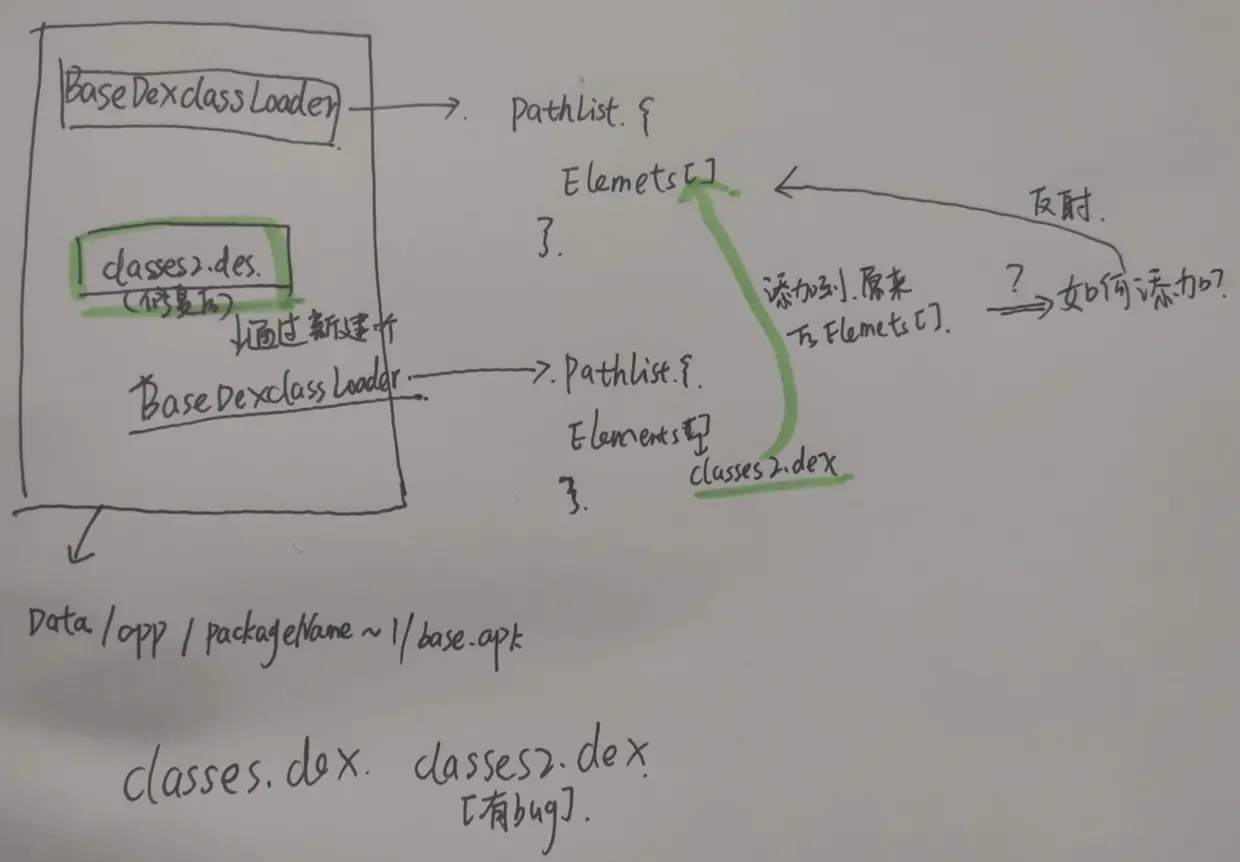 BaseDexclassLoader
pathList. {
Elemets[]
}.
反射.
classes2.des.
(修复后)
通过新建个
BaseDexclassLoader
添加到原来
的Elemets[].
?
如何添加?
pathlist.{.
Elements[]
classes2.dex
}.
Data/opp/packageName~1/base.apk
classes.dex. classes2.dex
[有bug].